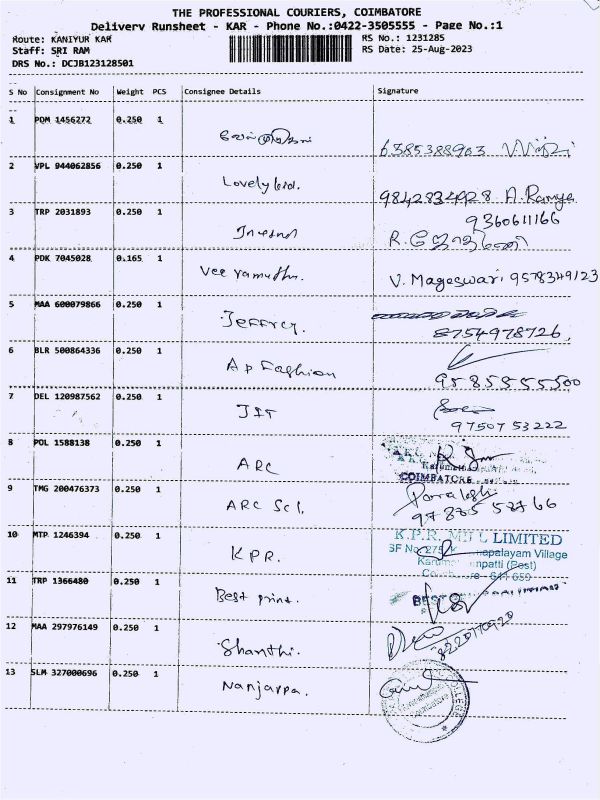 THE PROFESSIONAL COURIERS, COIMBATORE
Delivery Runsheet - KAR - Phone No.:0422-3505555 - Page No.:1
Route: KANIYUR KAR RS No.: 1231285
Staff: SRI RAM RS Date: 25-Aug-2023
DRS No.: DCJB123128501
S No Consignment No Weight PCS Consignee Details Signature
1 PDM 1456272 0.250 1
6385388903
2 VPL 944062856 0.250 1
Lovely
9842834928 A. Ramya
3 TRP 2031893 0.250 1
9360611166
R.
4 PDK 7045028 0.165 1
Veeramuthu.
V. Mageswari 9578349123
5 MAA 600079866 0.250 1
Jeffrey.
8754978726,
6 BLR 500864336 0.250 1
Ap Fashion
9585855500
7 DEL 120987562 0.250 1
JIT
97507 53222
8 POL 1588138 0.250 1
ARC
COIMBATORE
9 TMG 200476373 0.250 1
ARC Scl.
10 MTP 1246394 0.250 1
KPR.
K.P.R. MILL LIMITED
SF No. 275, palayam Village
Karum npatti (Post)
641 659
11 TRP 1366480 0.250 1
Best print.
BEST
12 MAA 297976149 0.250 1
Shanthi.
8220110920
13 SLM 327000696 0.250 1
Nanjappa.